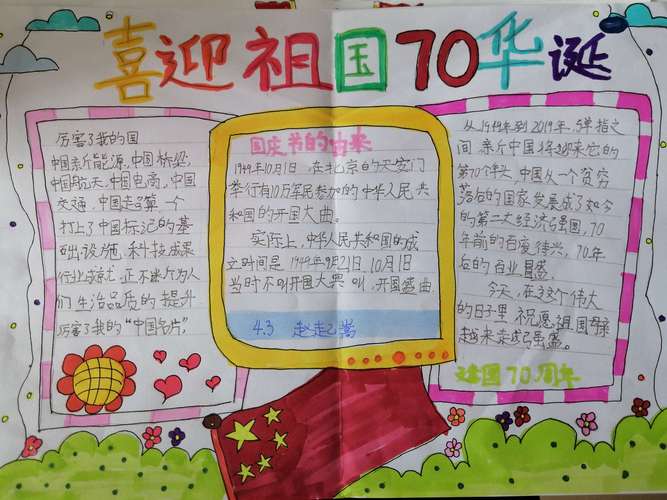 喜迎祖国70华诞
厉害了我的国
中国新能源,中国桥梁,
中国航天,中国电商,中国
交通,中国走了第一个
打上了中国标记的基
础设施,科技成果
行业成就,正不断为人
们生活品质的提升
厉害了我的“中国名片”
国庆节的由来
1949年10月1日,在北京的天安门
举行有10万军民参加的中华人民共
和国的开国大典。
实际上,中华人民共和国的成
立时间是1949年9月21日,10月1日
当时不叫开国大典叫,开国盛典.
4.3
从1949年到2019年,弹指之
间,新中国将迎来它的
第70个年头,中国从一个贫穷
落后的国家发展成了如今
的第二大经济强国,70
年前的百废待兴,70年
后的百业昌盛.
今天,在这个伟大
的日子里,祝愿祖国母亲
越来越强盛。
建国70周年